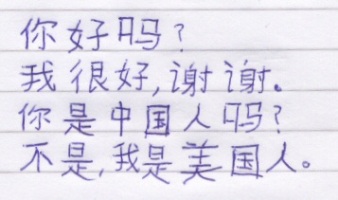 你好吗?
我很好,谢谢。
你是中国人吗?
不是,我是美国人。